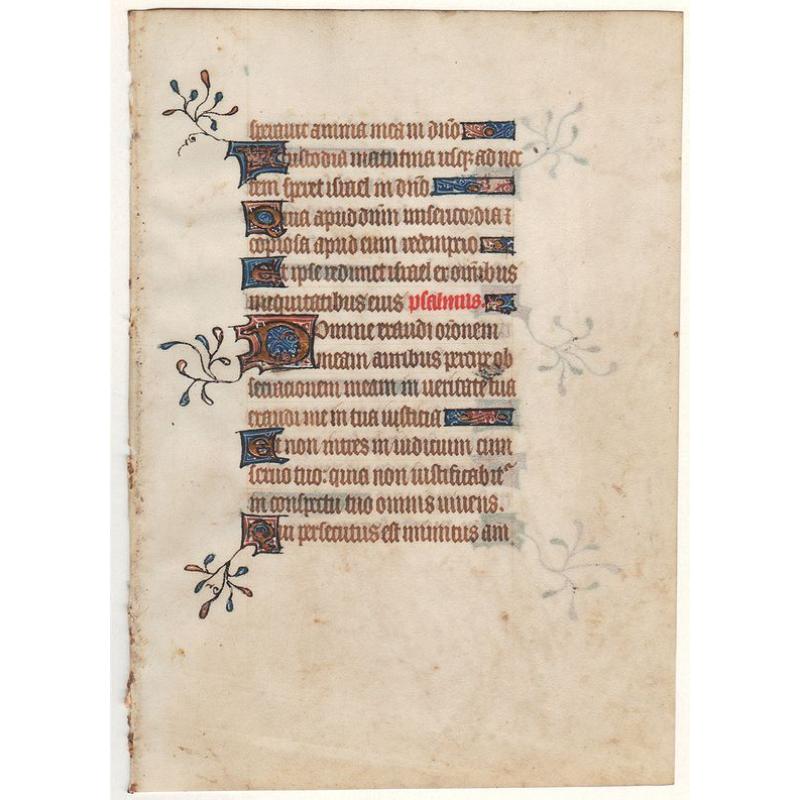 speravit anima mea in dn̄o
A custodia matutina usq; ad noc
tem speret israel in dn̄o.
Quia apud dn̄m misericordia ⁊
copiosa apud eum redemptio
Et ipse redimet israel ex om̄ibus
iniquitatibus eius psalmus.
Domine exaudi or̄onem
meam auribus percipe ob
secracionem meam in veritate tua
exaudi me in tua iusticia
Et non intres in iudicium cum
servo tuo: quia non iustificabit᷑
in conspectu tuo omnis vivens.
Quia persecutus est inimicus ani